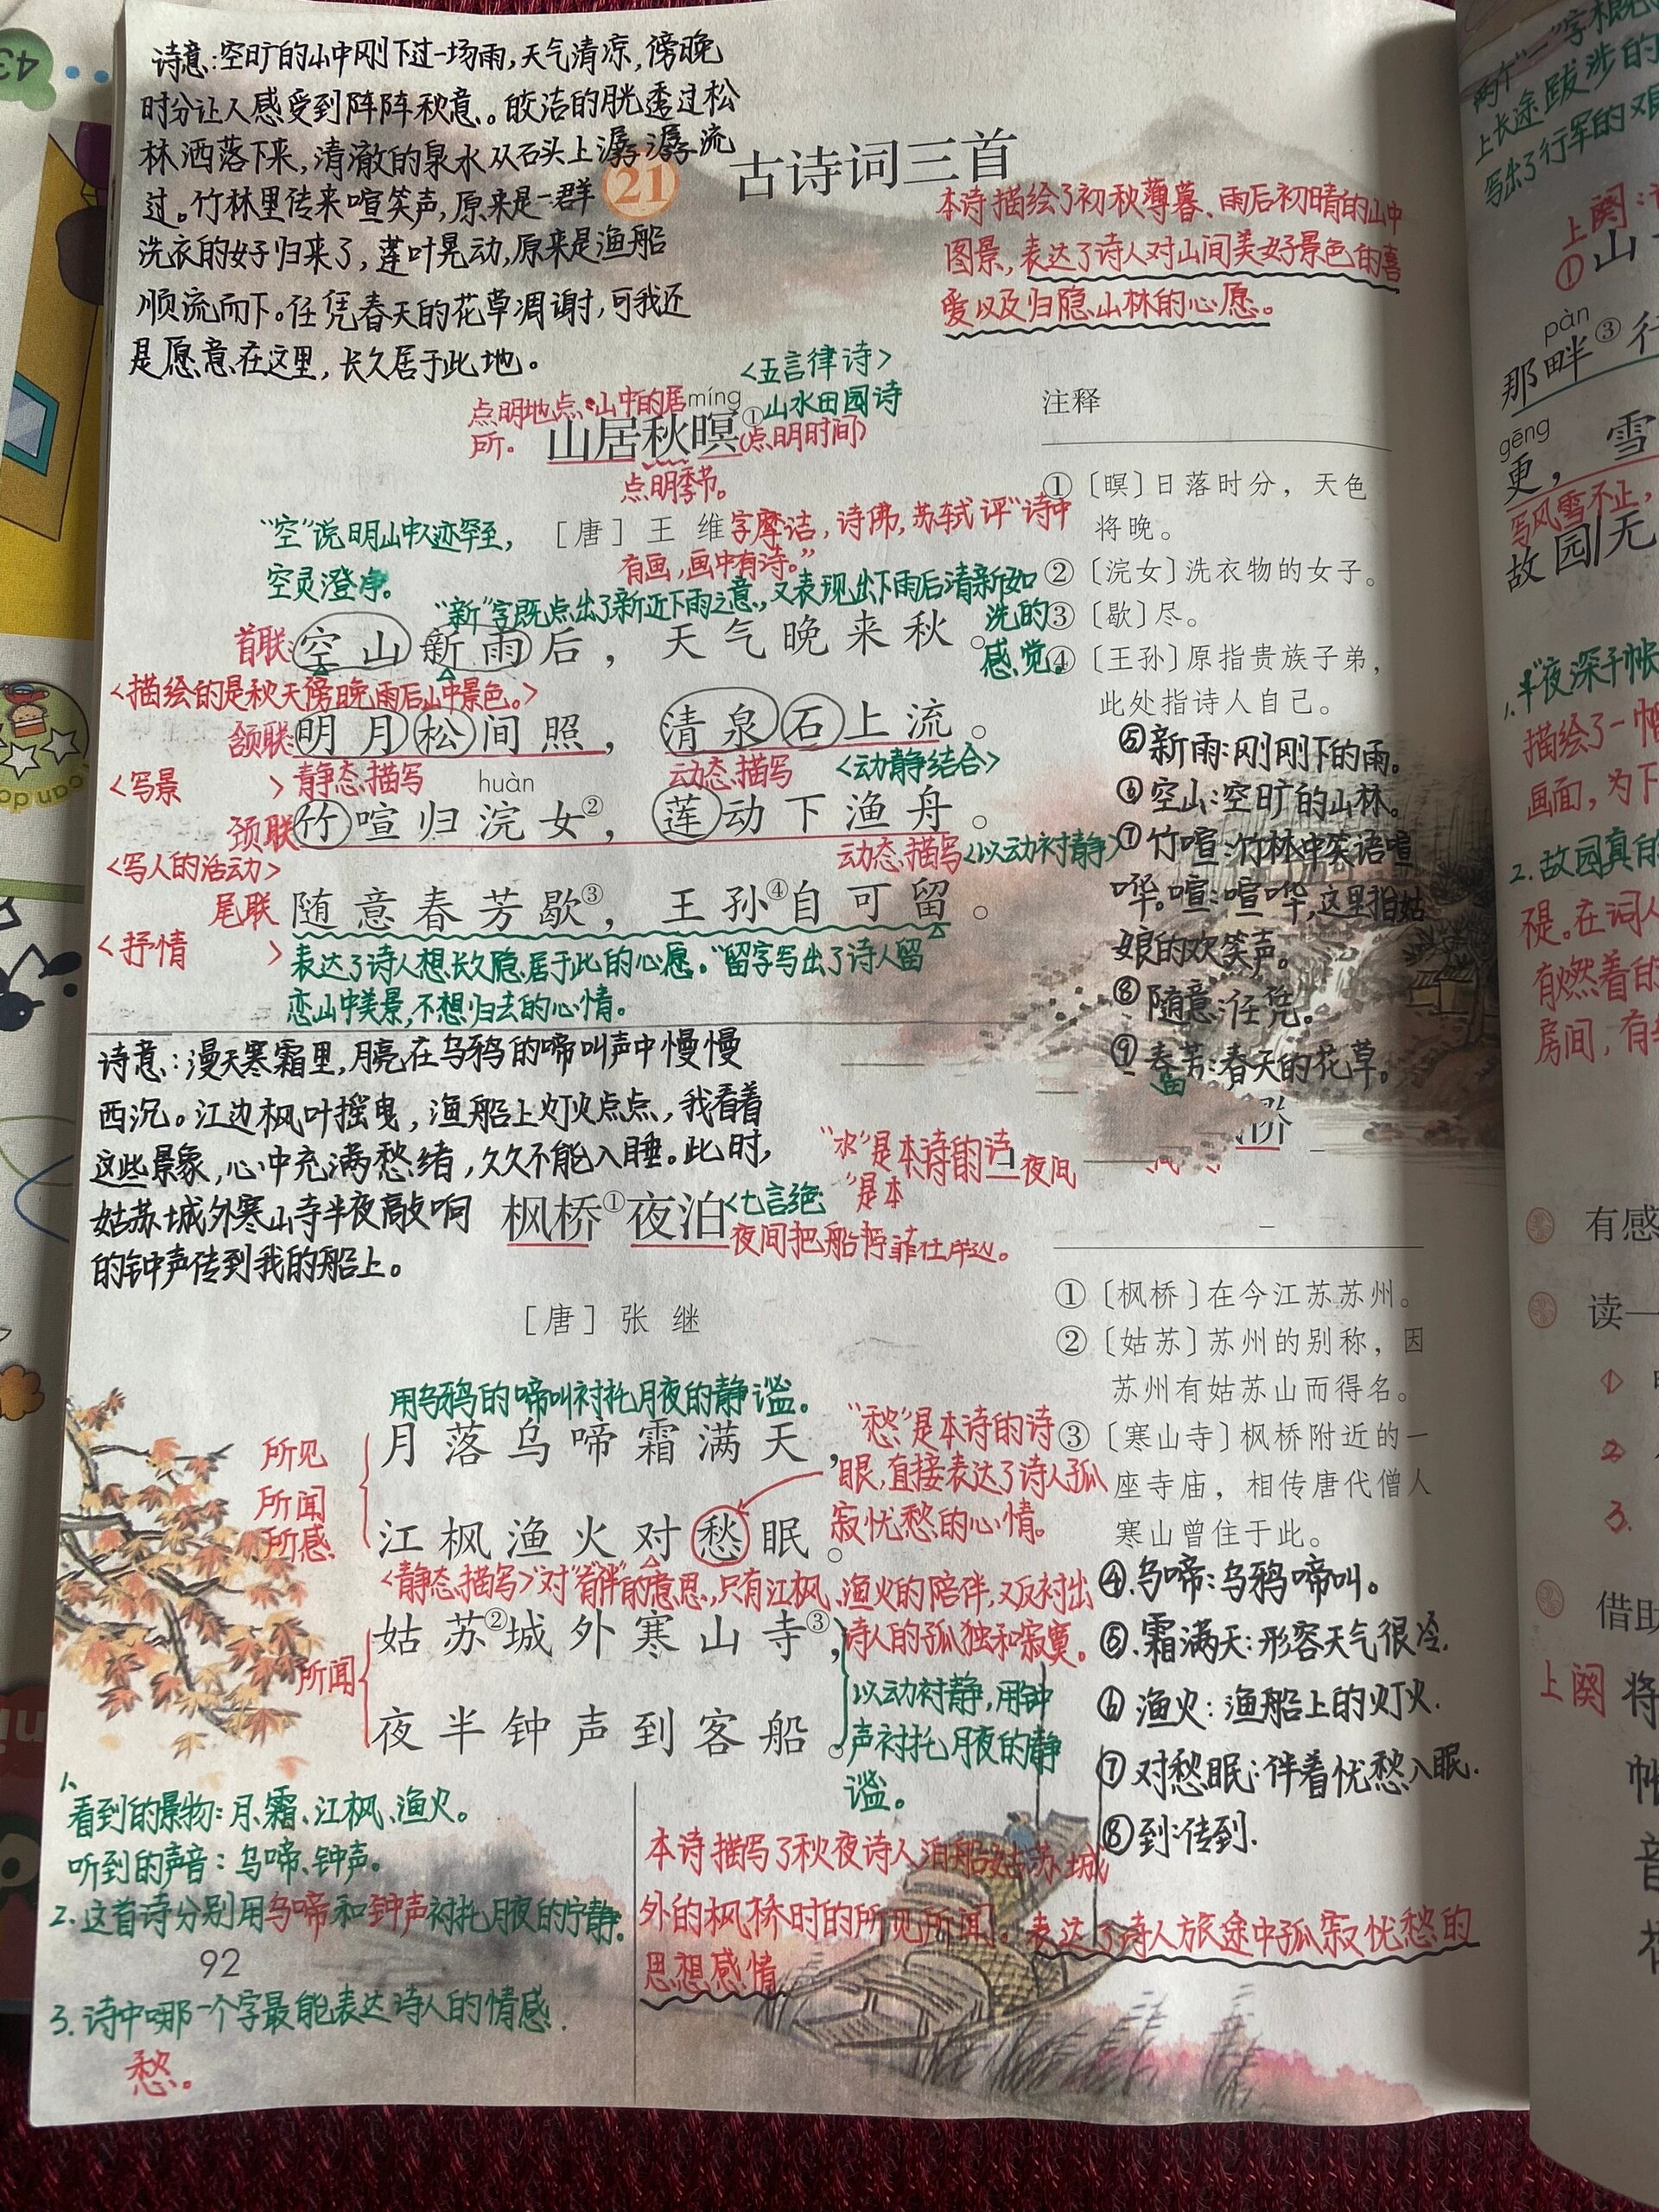 诗意:空旷的山中刚下过一场雨,天气清凉,傍晚
时分让人感受到阵阵秋意。皎洁的月光透过松
林洒落下来,清澈的泉水从石头上潺潺流
过。竹林里传来喧笑声,原来是一群
洗衣的女子归来了,莲叶晃动,原来是渔船
顺流而下。任凭春天的花草凋谢,可我还
是愿意在这里,长久居于此地。
21
古诗词三首
本诗描绘了初秋薄暮、雨后初晴的山中
图景,表达了诗人对山间美好景色的喜
爱以及归隐山林的心愿。
<五言律诗>
山水田园诗
点明地点:山中的居
所。
míng
山居秋暝①
(点明时间)
点明季节。
[唐] 王 维
字摩诘,诗佛,苏轼评“诗中
有画,画中有诗。”
“空”说明山中人迹罕至,
空灵澄净。
“新”字既点出了新近下雨之意,又表现出下雨后清新如
洗的
感觉。
首联:
空山新雨后,天气晚来秋。
<描绘的是秋天傍晚雨后山中景色。>
颔联:
明月松间照,清泉石上流。
<写景>
静态描写
动态描写
<动静结合>
huàn
颈联
竹喧归浣女②,莲动下渔舟。
<写人的活动>
动态描写<以动衬静>
尾联
随意春芳歇③,王孙④自可留。
<抒情>
表达了诗人想长久隐居于此的心愿。“留”字写出了诗人留
恋山中美景,不想归去的心情。
注释
①〔暝〕日落时分,天色
将晚。
②〔浣女〕洗衣物的女子。
③〔歇〕尽。
④〔王孙〕原指贵族子弟,
此处指诗人自己。
⑤新雨:刚刚下的雨。
⑥空山:空旷的山林。
⑦竹喧:竹林中笑语喧
哗。喧:喧哗,这里指姑
娘的欢笑声。
⑧随意:任凭。
⑨春芳:春天的花草。
诗意:漫天寒霜里,月亮在乌鸦的啼叫声中慢慢
西沉。江边枫叶摇曳,渔船上灯火点点,我看着
这些景象,心中充满愁绪,久久不能入睡。此时,
姑苏城外寒山寺半夜敲响
的钟声传到我的船上。
是本诗的诗
夜间
是本
枫桥①夜泊
<七言绝
夜间把船停
[唐] 张 继
用乌鸦的啼叫衬托月夜的静谧。
所见
所闻
所感
月落乌啼霜满天,
江枫渔火对愁眠。
“愁”是本诗的诗
眼,直接表达了诗人孤
寂忧愁的心情。
<静态描写>“对”有“伴”的意思,只有江枫、渔火的陪伴,又反衬出
诗人的孤独和寂寞。
所闻
姑苏②城外寒山寺③,
夜半钟声到客船。
以动衬静,用钟
声衬托月夜的静
谧。
①〔枫桥〕在今江苏苏州。
②〔姑苏〕苏州的别称,因
苏州有姑苏山而得名。
③〔寒山寺〕枫桥附近的一
座寺庙,相传唐代僧人
寒山曾住于此。
④.乌啼:乌鸦啼叫。
⑤.霜满天:形容天气很冷.
⑥渔火:渔船上的灯火.
⑦对愁眠:伴着忧愁入眠.
⑧到:传到.
1、
看到的景物:月、霜、江枫、渔火。
听到的声音:乌啼、钟声。
2.这首诗分别用乌啼和钟声衬托月夜的宁静.
92
3.诗中哪一个字最能表达诗人的情感.
愁。
本诗描写了秋夜诗人泊船姑苏城
外的枫桥时的所见所闻。表达了诗人旅途中孤寂忧愁的
思想感情
上长途跋涉的
写出了行军的艰
上阕:
①山
pàn
那畔③行
gēng
更,雪
写风雪不止,
故园无
1.夜深千帐
描绘了一幅
画面,为下
2.故园真的
有燃着的
房间,有
有感
读一
1
2
3.
借助
上阕
将
43